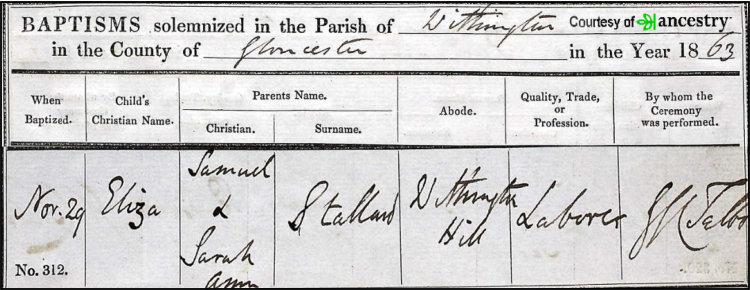 BAPTISMS solemnized in the Parish of Withington Courtesy of ancestry
in the County of Gloucester in the Year 1863
When Baptized. Child's Christian Name. Parents Name. Abode. Quality, Trade, or Profession. By whom the Ceremony was performed.
Christian. Surname.
Nov. 29 Eliza Samuel & Sarah Ann Stallard Withington Hill Laborer
No. 312.